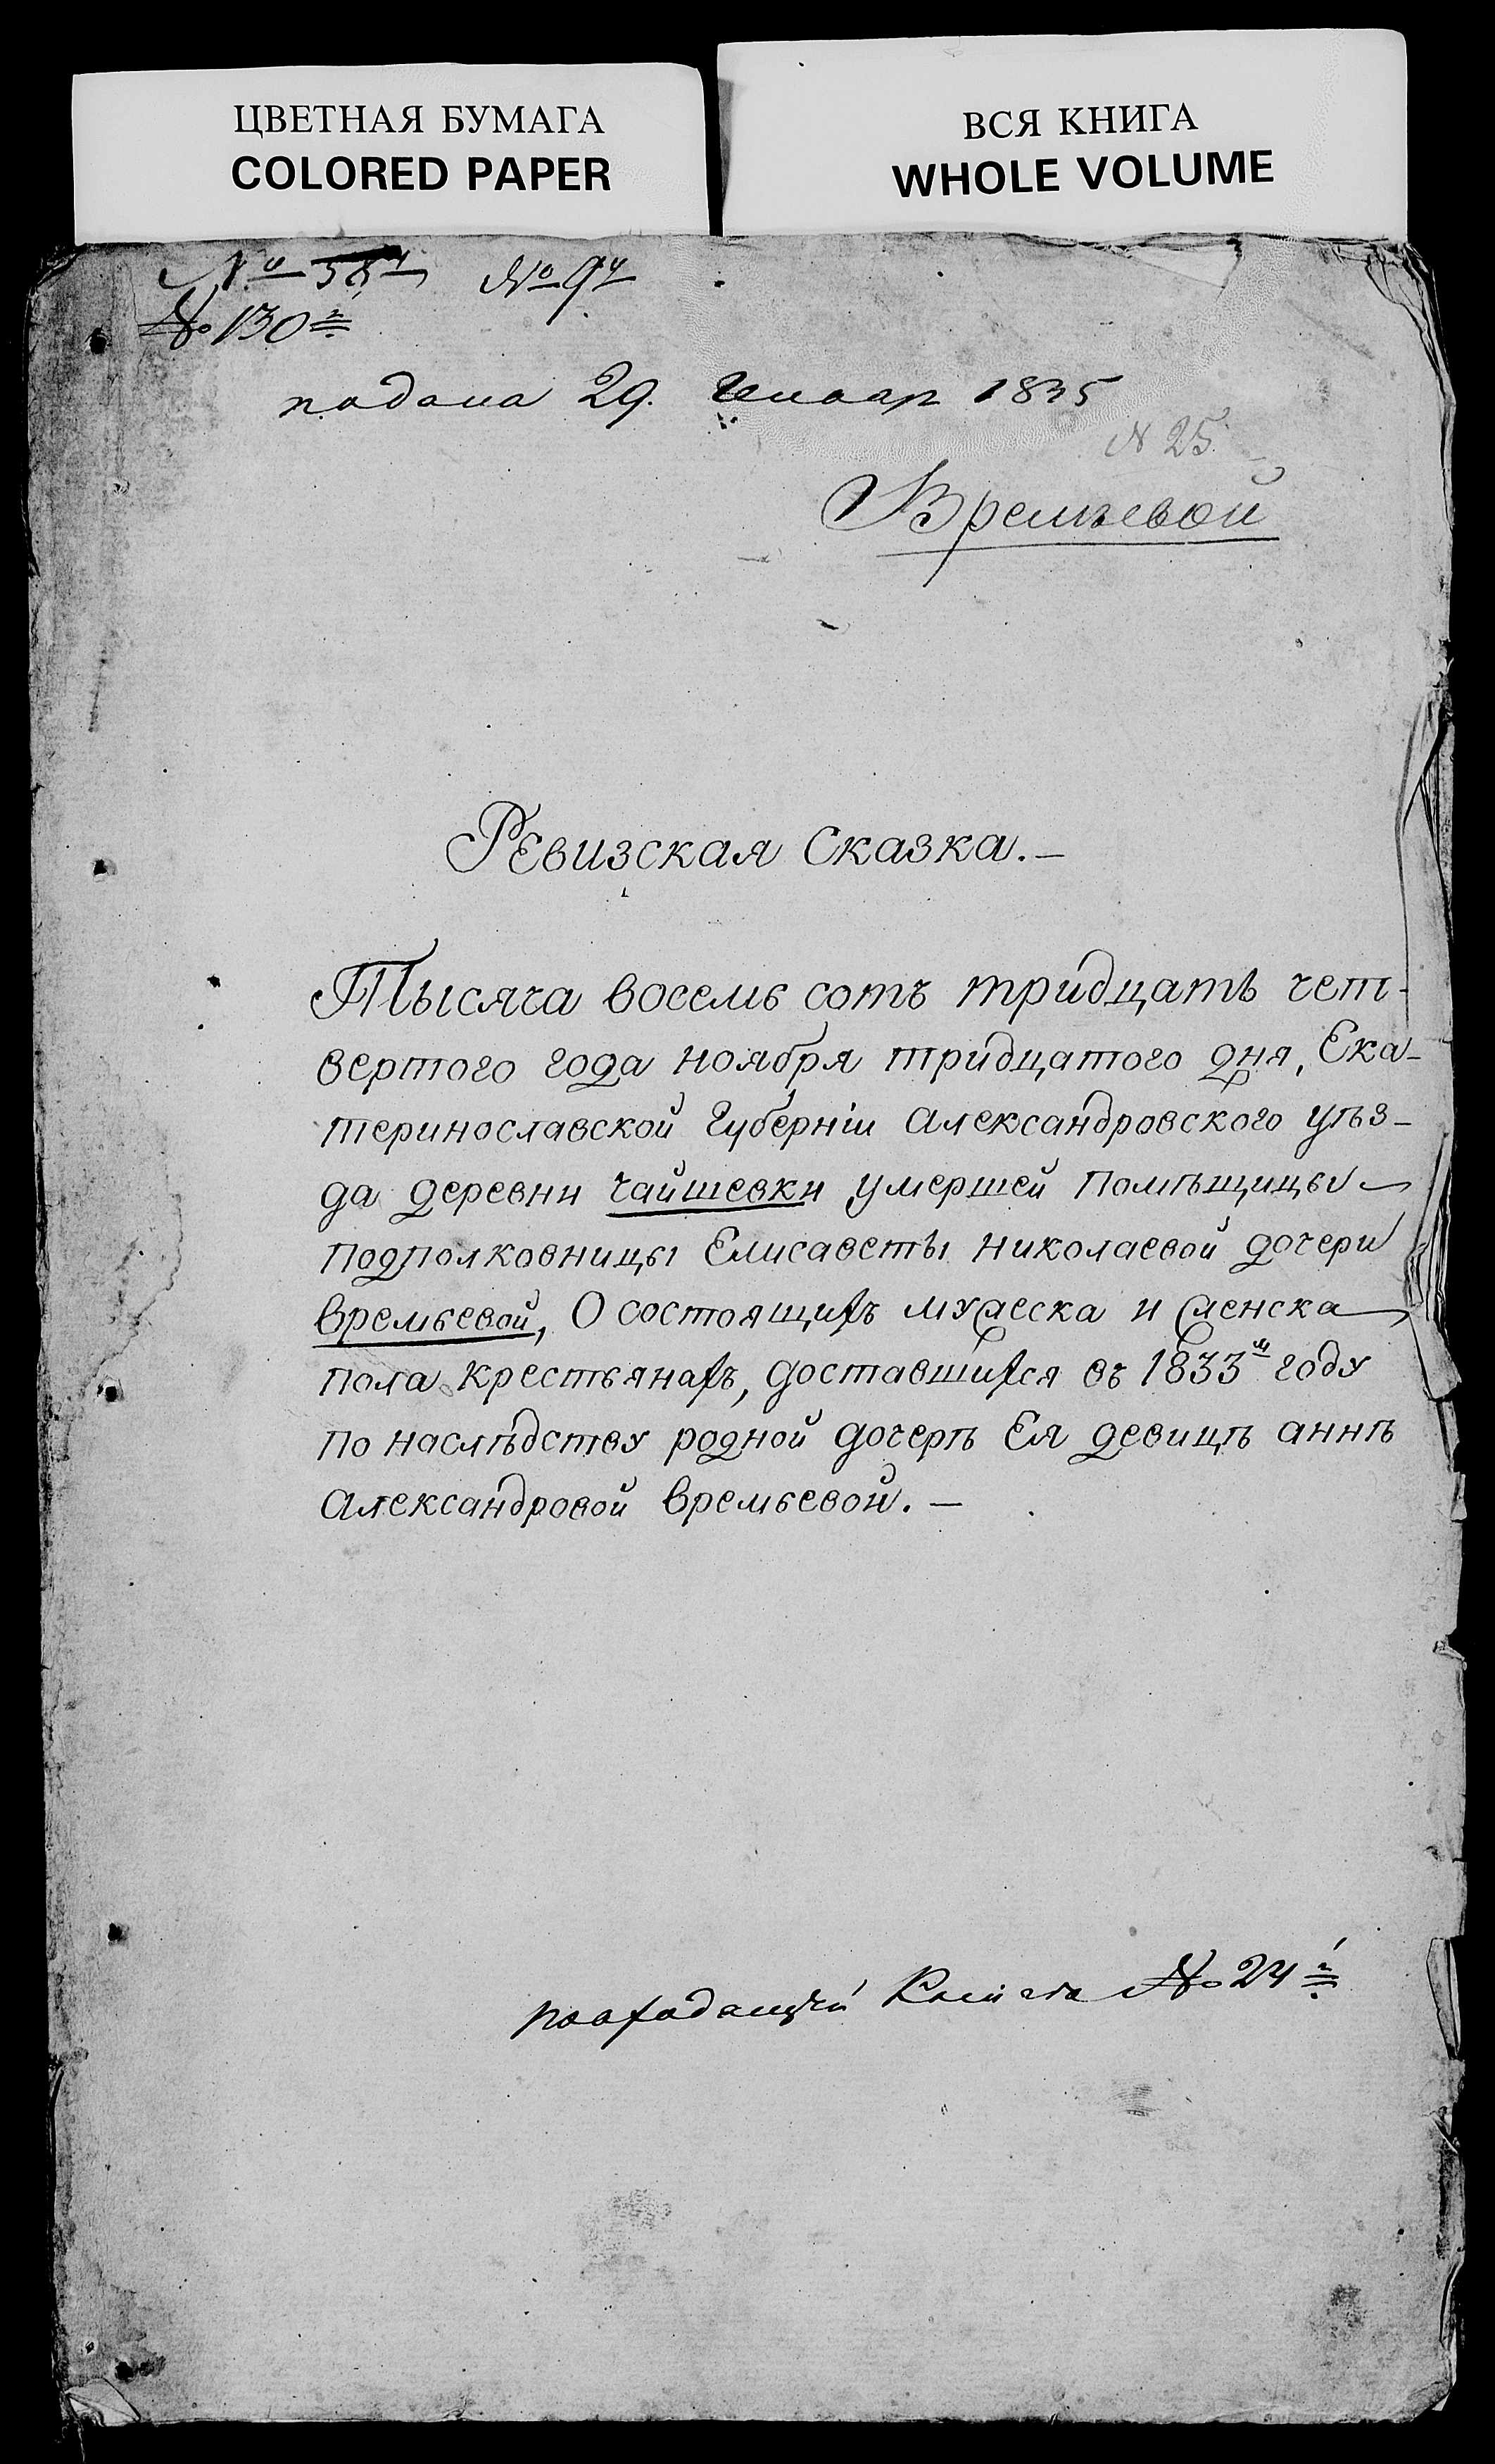 ЦВЕТНАЯ БУМАГА
COLORED PAPER
ВСЯ КНИГА
WHOLE VOLUME
№ 58 № 94
№ 130
подана 29. Генваря 1835
N 25.
Времьевой
Ревизская Сказка.—
Тысяча восемь сотъ тридцать чет-
вертого года ноября тридцатого дня, Ека-
теринославской Губерніи Александровского уѣз-
да деревни Чайшевки умершей Помѣщицы
подполковницы Елисаветы Николаевой дочери
Времьевой, О состоящихъ мужеска и женска
пола крестьянахъ, доставшихся въ 1833м году
по наслѣдству родной дочерѣ Ея девицѣ аннѣ
Александровой Времьевой.—
№ 24